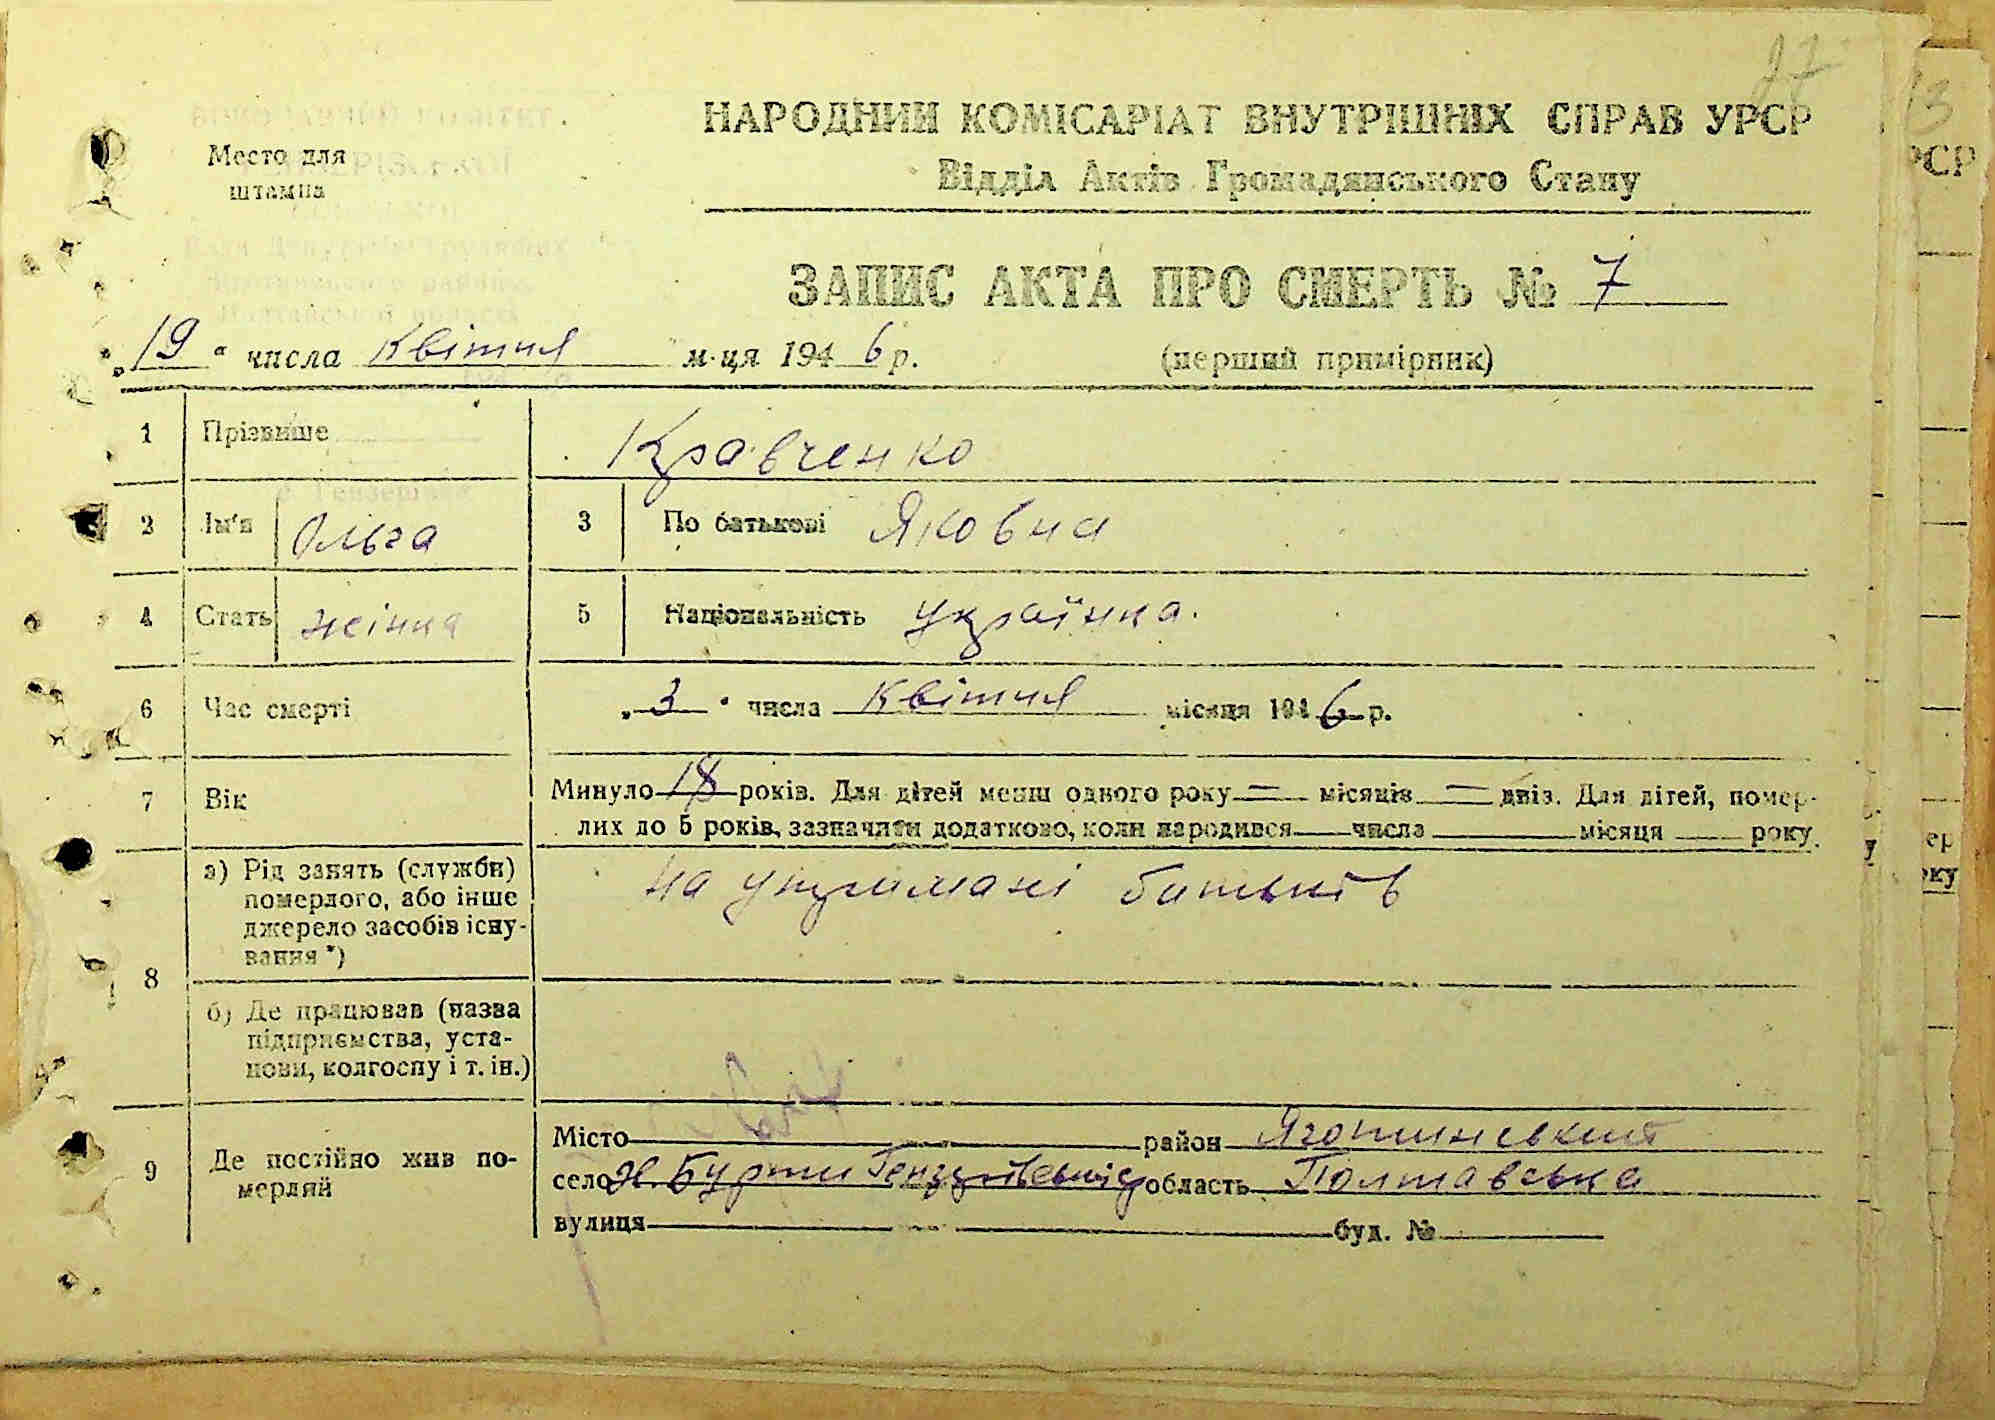 27
НАРОДНИЙ КОМІСАРІАТ ВНУТРІШНІХ СПРАВ УРСР
Место для
штампа
Відділ Актів Громадянського Стану
ЗАПИС АКТА ПРО СМЕРТЬ № 7
„19“ числа Квітня м-ця 1946 р.
(перший примірник)
1 Прізвище Кравченко
2 Ім'я Ольга 3 По батькові Яковна
4 Стать жінка 5 Національність українка.
6 Час смерті „3“ числа Квітня місяця 1946 р.
7 Вік Минуло 18 років. Для дітей менш одного року = місяців = днів. Для дітей, помер-
лих до 5 років, зазначити додатково, коли народився числа місяця року
8 а) Рід занять (служби)
померлого, або інше
джерело засобів існу-
вання *)
на утримані батьків
б) Де працював (назва
підприємства, уста-
нови, колгоспу і т. ін.)
9 Де постійно жив по-
мерлий
Місто район Яготинський
село Н. Бурти область Полтавська
вулиця буд. №
13
РСР
ер
оку